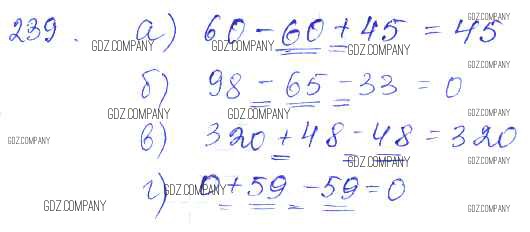 239. а) 60 - 60 + 45 = 45
GDZ.COMPANY
GDZ.COMPANY GDZ.COMPANY GDZ.COMPANY
GDZ.COMPANY
б) 98 - 65 - 33 = 0
GDZ.COMPANY
GDZ.COMPANY GDZ.COMPANY GDZ.COMPANY
в) 320 + 48 - 48 = 320
GDZ.COMPANY
GDZ.COMPANY GDZ.COMPANY
г) 0 + 59 - 59 = 0
GDZ.COMPANY GDZ.COMPANY
GDZ.COMPANY GDZ.COMPANY GDZ.COMPANY